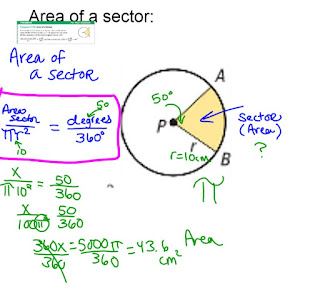 Area of a sector:
Area of
a sector
Area
sector
πr²
10
=
50
degrees
360°
50°
A
P
r
r=10cm
B
sector
(Area)
?
π
x/π10² = 50/360
x/100π = 50/360
360x/360 = 5000π/360 = 43.6 cm² Area